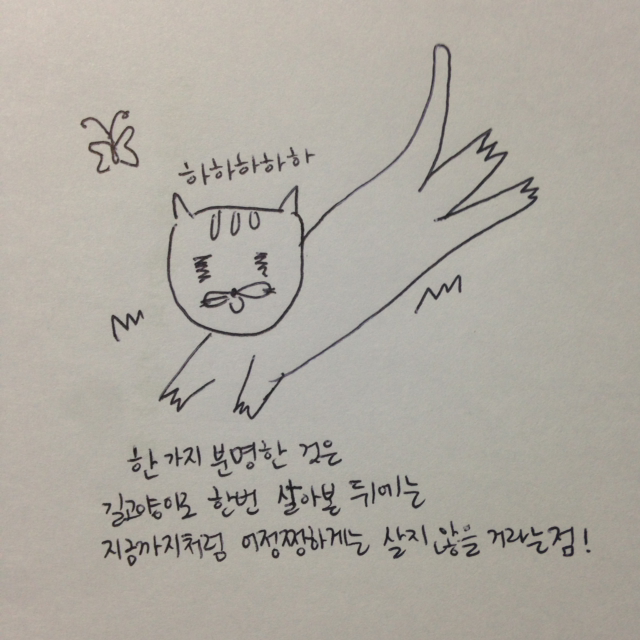 하하하하하
한 가지 분명한 것은
길고양이로 한번 살아볼 뒤에는
지금까지처럼 어정쩡하게는 살지 않을 거라는 점!